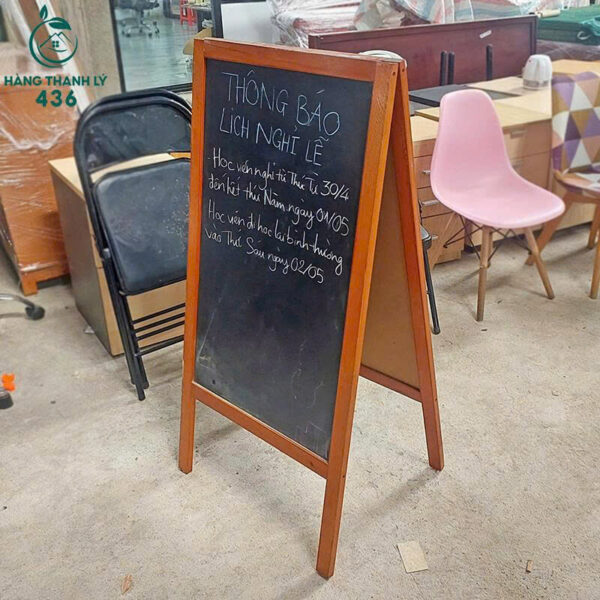 HÀNG THANH LÝ
436
THÔNG BÁO
LỊCH NGHỈ LỄ
- Học viên nghỉ từ Thứ Tư 30/4
đến hết thứ Năm ngày 01/05
Học viên đi học lại bình thường
vào Thứ Sáu ngày 02/05